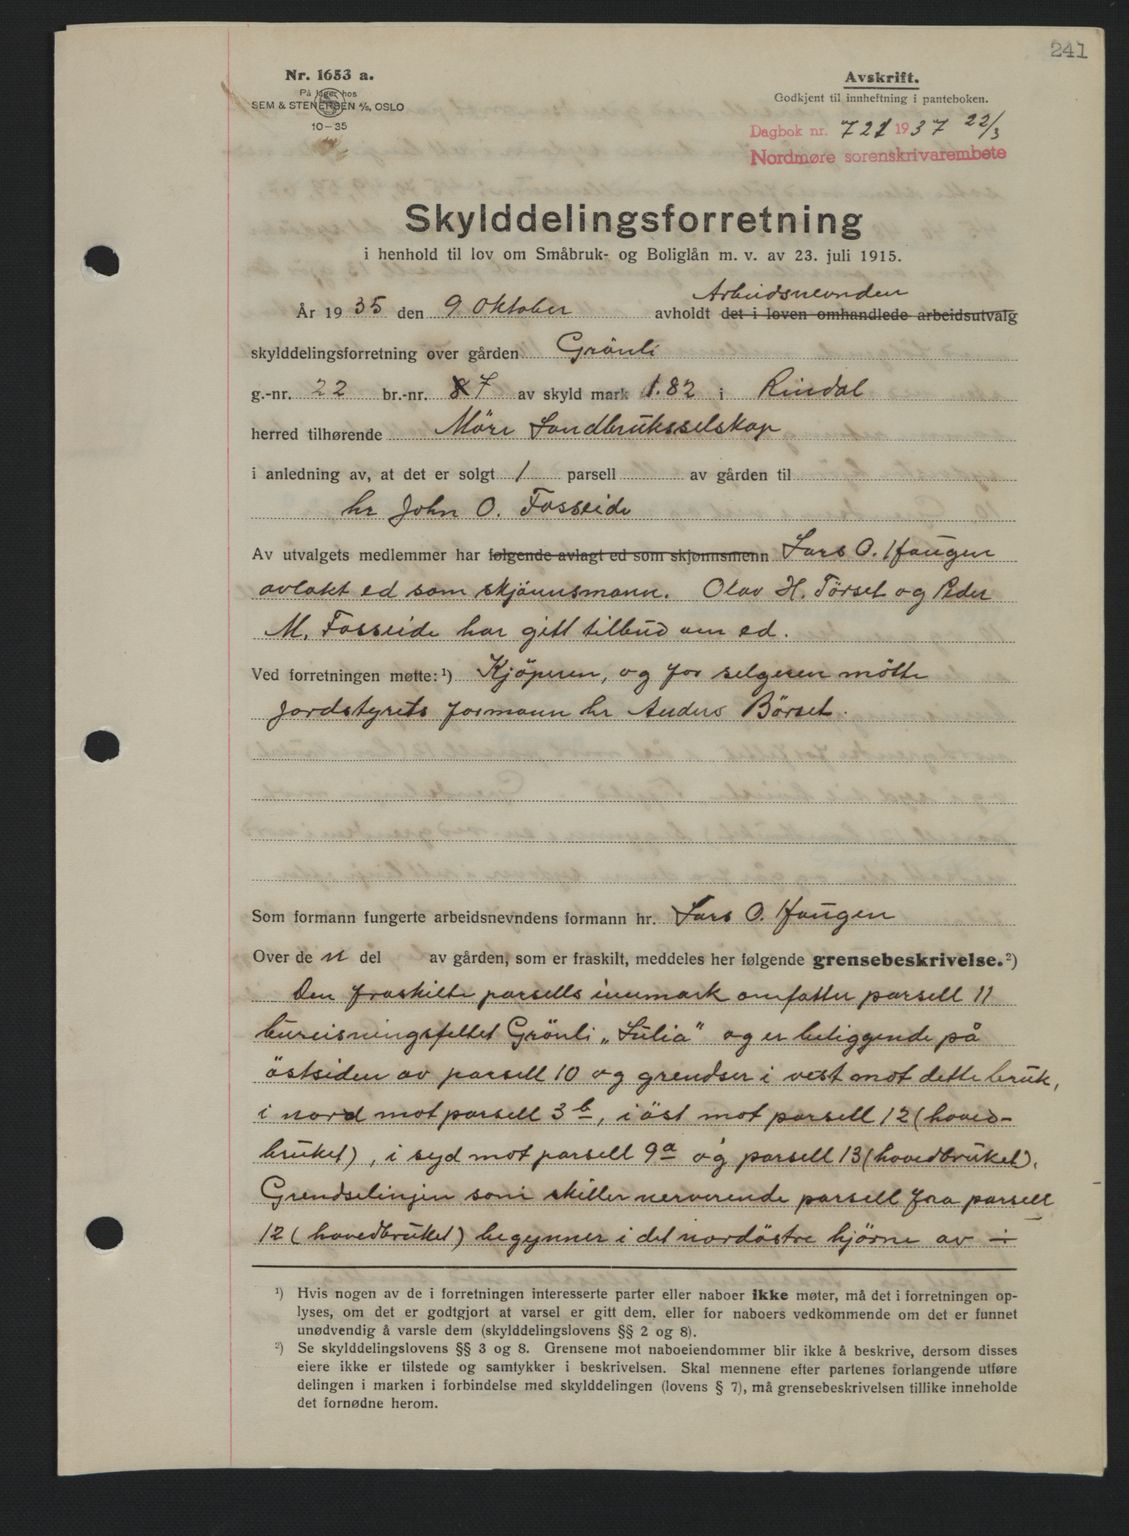 241
Nr. 1653 a.
På lager hos
SEM & STENERSEN A/S, OSLO
10-35
Avskrift.
Godkjent til innheftning i panteboken.
Dagbok nr. 721 1937 22/3
Nordmøre sorenskrivarembete
Skylddelingsforretning
i henhold til lov om Småbruk- og Boliglån m. v. av 23. juli 1915.
Arbeidsnevnden
År 1935 den 9 Oktober avholdt det i loven omhandlede arbeidsutvalg
skylddelingsforretning over gården Grönli
g.-nr. 22 br.-nr. 87 av skyld mark 1.82 i Rindal
herred tilhørende Möre Landbruksselskap
i anledning av, at det er solgt 1 parsell av gården til
hr John O. Fosseide
Av utvalgets medlemmer har følgende avlagt ed som skjønnsmenn Lars O. Haugen
avlakt ed som skjönnsmann. Olav H. Törset og Peder
M. Fosseide har gitt tilbud om ed.
Ved forretningen møtte:¹) Kjöperen, og for selgeren mötte
jordstyrets formann hr Anders Börset.
Som formann fungerte arbeidsnevndens formann hr. Lars O. Haugen
Over de n del av gården, som er fraskilt, meddeles her følgende grensebeskrivelse.²)
Den fraskilte parsells innmark omfatter parsell 11
bureisningsfeltet Grönli „Lülia" og er beliggende på
östsiden av parsell 10 og grendser i vest mot dette bruk,
i nord mot parsell 3 b, i öst mot parsell 12 (hoved-
bruket), i syd mot parsell 9a og parsell 13 (hovedbruket).
Grendselinjen som skiller nerverende parsell fra parsell
12 (hovedbruket) begynner i det nordöstre hjörne av
¹) Hvis nogen av de i forretningen interesserte parter eller naboer ikke møter, må det i forretningen op-
lyses, om det er godtgjort at varsel er gitt dem, eller for naboers vedkommende om det er funnet
unødvendig å varsle dem (skylddelingslovens §§ 2 og 8).
²) Se skylddelingslovens §§ 3 og 8. Grensene mot naboeiendommer blir ikke å beskrive, dersom disses
eiere ikke er tilstede og samtykker i beskrivelsen. Skal mennene efter partenes forlangende utføre
delingen i marken i forbindelse med skylddelingen (lovens § 7), må grensebeskrivelsen tillike inneholde
det fornødne herom.